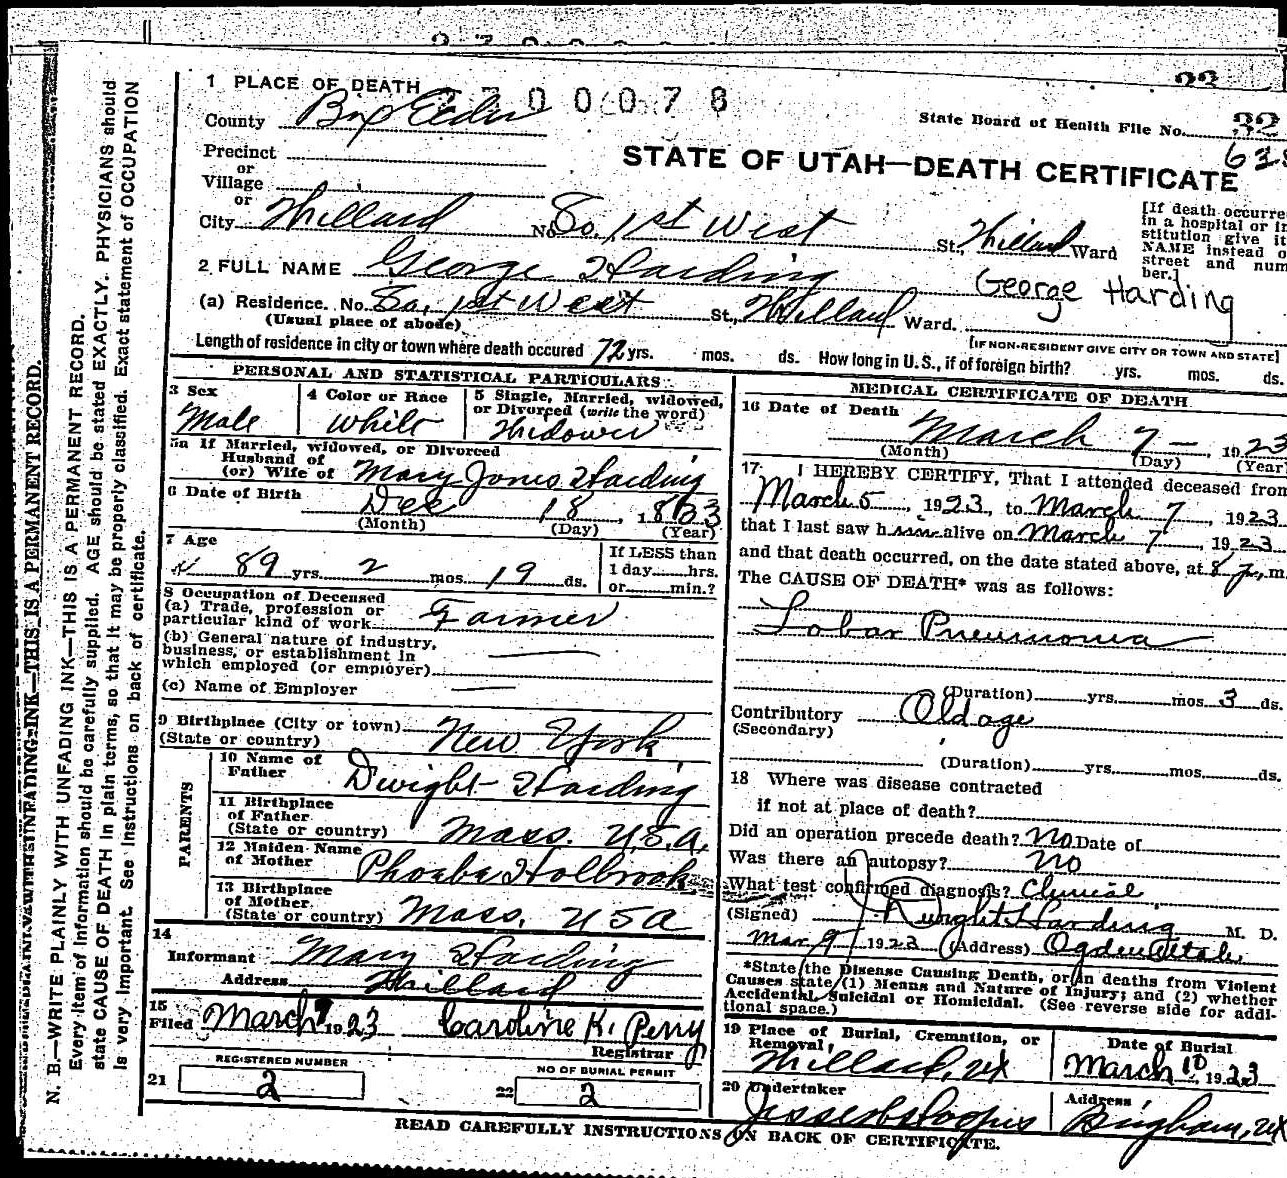 1 PLACE OF DEATH 2300078
County Box Elder
State Board of Health File No. 32
Precinct
or
Village
or
STATE OF UTAH—DEATH CERTIFICATE
City Willard No. So. 1st West St. Willard Ward
[If death occurre
in a hospital or in
stitution give it
NAME instead o
street and num
ber.]
2 FULL NAME George Harding
George Harding
(a) Residence. No. So. 1st West St., Willard Ward.
(Usual place of abode)
[IF NON-RESIDENT GIVE CITY OR TOWN AND STATE]
Length of residence in city or town where death occured 72 yrs. mos. ds. How long in U.S., if of foreign birth? yrs. mos. ds.
PERSONAL AND STATISTICAL PARTICULARS
3 Sex
Male
4 Color or Race
White
5 Single, Married, widowed,
or Divorced (write the word)
Widower
5a If Married, widowed, or Divorced
Husband of
(or) Wife of Mary Jones Harding
6 Date of Birth Dec 18, 1833
(Month) (Day) (Year)
7 Age
89 yrs. 2 mos. 19 ds.
If LESS than
1 day hrs.
or min.?
8 Occupation of Deceased
(a) Trade, profession or
particular kind of work Farmer
(b) General nature of industry,
business, or establishment in
which employed (or employer)
(c) Name of Employer
9 Birthplace (City or town)
(State or country) New York
PARENTS
10 Name of
Father Dwight Harding
11 Birthplace
of Father
(State or country) Mass. U.S.A.
12 Maiden Name
of Mother Phoebe Holbrook
13 Birthplace
of Mother
(State or country) Mass. USA
14
Informant Mary Harding
Address Willard
15
Filed March 9 1923 Caroline K. Perry
Registrar
REGISTERED NUMBER
21 2
NO OF BURIAL PERMIT
22 2
MEDICAL CERTIFICATE OF DEATH
16 Date of Death
March 7 — 1923
(Month) (Day) (Year
17 I HEREBY CERTIFY, That I attended deceased from
March 5, 1923, to March 7, 1923
that I last saw him alive on March 7, 1923
and that death occurred, on the date stated above, at 8 p. m
The CAUSE OF DEATH* was as follows:
Lobar Pneumonia
(Duration) yrs. mos. 3 ds.
Contributory Old age
(Secondary)
(Duration) yrs. mos. ds.
18 Where was disease contracted
if not at place of death?
Did an operation precede death? No Date of
Was there an autopsy? No
What test confirmed diagnosis? Clinical
(Signed) Dwight Harding M. D.
Mar 9, 1923 (Address) Ogden Utah
*State the Disease Causing Death, or in deaths from Violent
Causes state (1) Means and Nature of Injury; and (2) whether
Accidental, Suicidal or Homicidal. (See reverse side for addi-
tional space.)
19 Place of Burial, Cremation, or
Removal,
Willard, Ut
Date of Burial
March 10, 1923
20 Undertaker
Address
Brigham, Ut
READ CAREFULLY INSTRUCTIONS ON BACK OF CERTIFICATE.
N. B.—WRITE PLAINLY WITH UNFADING INK—THIS IS A PERMANENT RECORD.
Every item of Information should be carefully supplied. AGE should be stated EXACTLY. PHYSICIANS should
state CAUSE OF DEATH in plain terms, so that it may be properly classified. Exact statement of OCCUPATION
is very important. See Instructions on back of certificate.